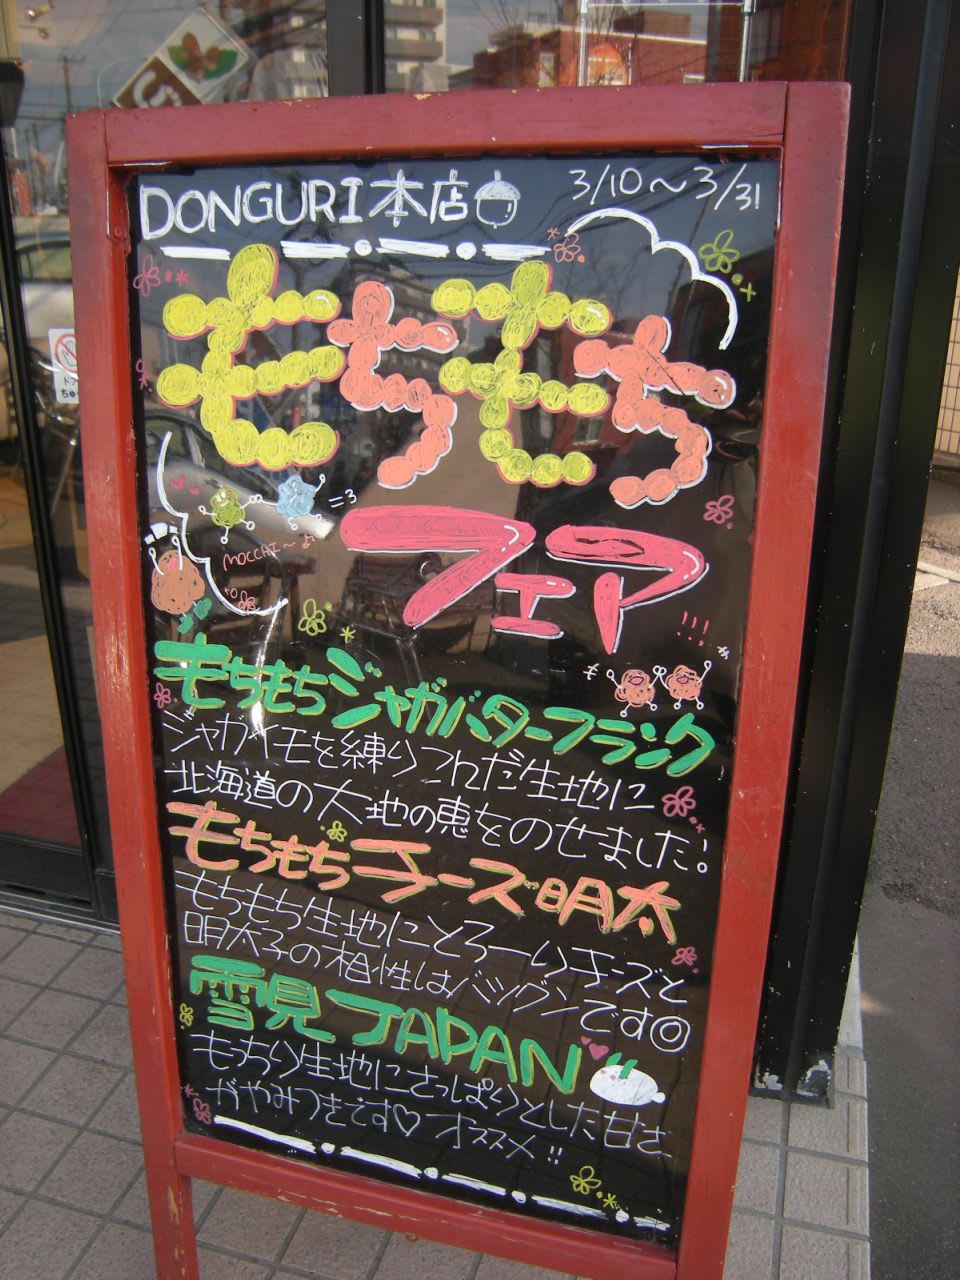 DONGURI本店
3/10～3/31
もちもち
フェア
MOCCHI～
もちもちジャガバターフランク
ジャガイモを練りこんだ生地に
北海道の大地の恵をのせました!
もちもちチーズ明太
もちもち生地にとろーいチーズと
明太子の相性はバツグンです◎
雪見JAPAN
もっちり生地にさっぱりとした甘さ
がやみつきです♡オススメ!!